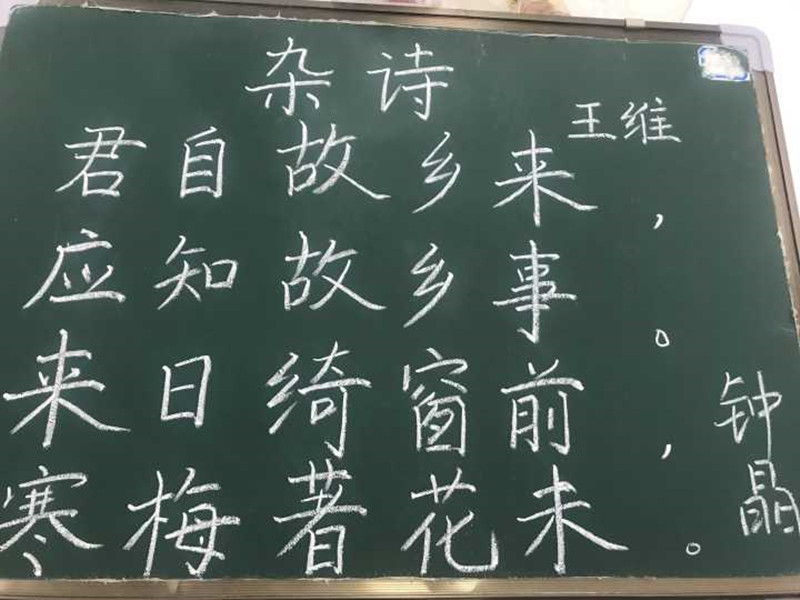 杂诗
王维
君自故乡来，
应知故乡事。
来日绮窗前，
寒梅著花未。
钟晶